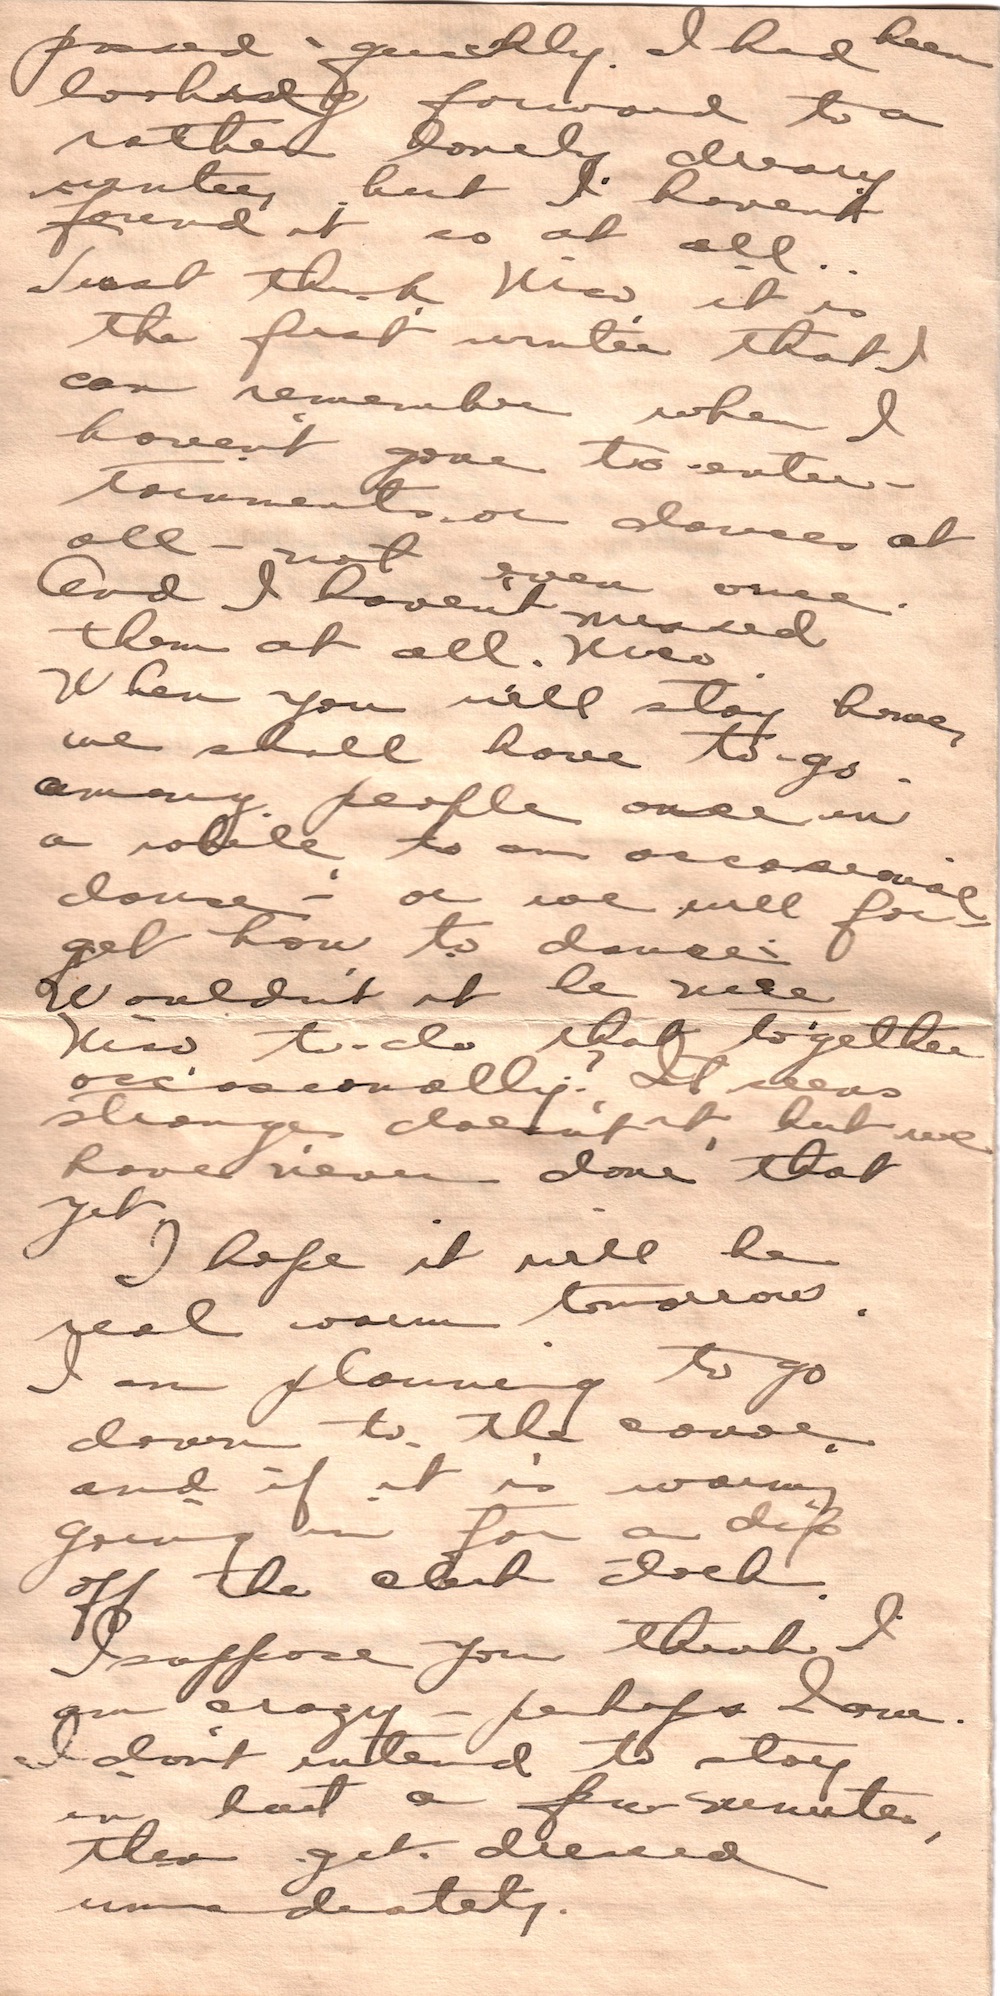 passed quickly. I had been
looking forward to a
rather lonely dreary
winter, but I haven't
found it so at all..
Just think, Niso, it is
the first winter that I
can remember when I
haven't gone to enter-
tainments or dances at
all – not even once.
And I haven't missed
them at all. Niso
When you will stay home,
we shall have to go
among people once in
a while to an occasional
dance – or we will for-
get how to dance.
Wouldn't it be nice
Niso to do that together
occasionally? It seems
strange doesn't it, but we
have never done that
yet.
I hope it will be
real warm tomorrow.
I am planning to go
down to the canoe,
and if it is warm,
going in for a dip
off the club dock.
I suppose you think I
am crazy – perhaps I am.
I don't intend to stay
in but a few minutes,
then get dressed
immediately.